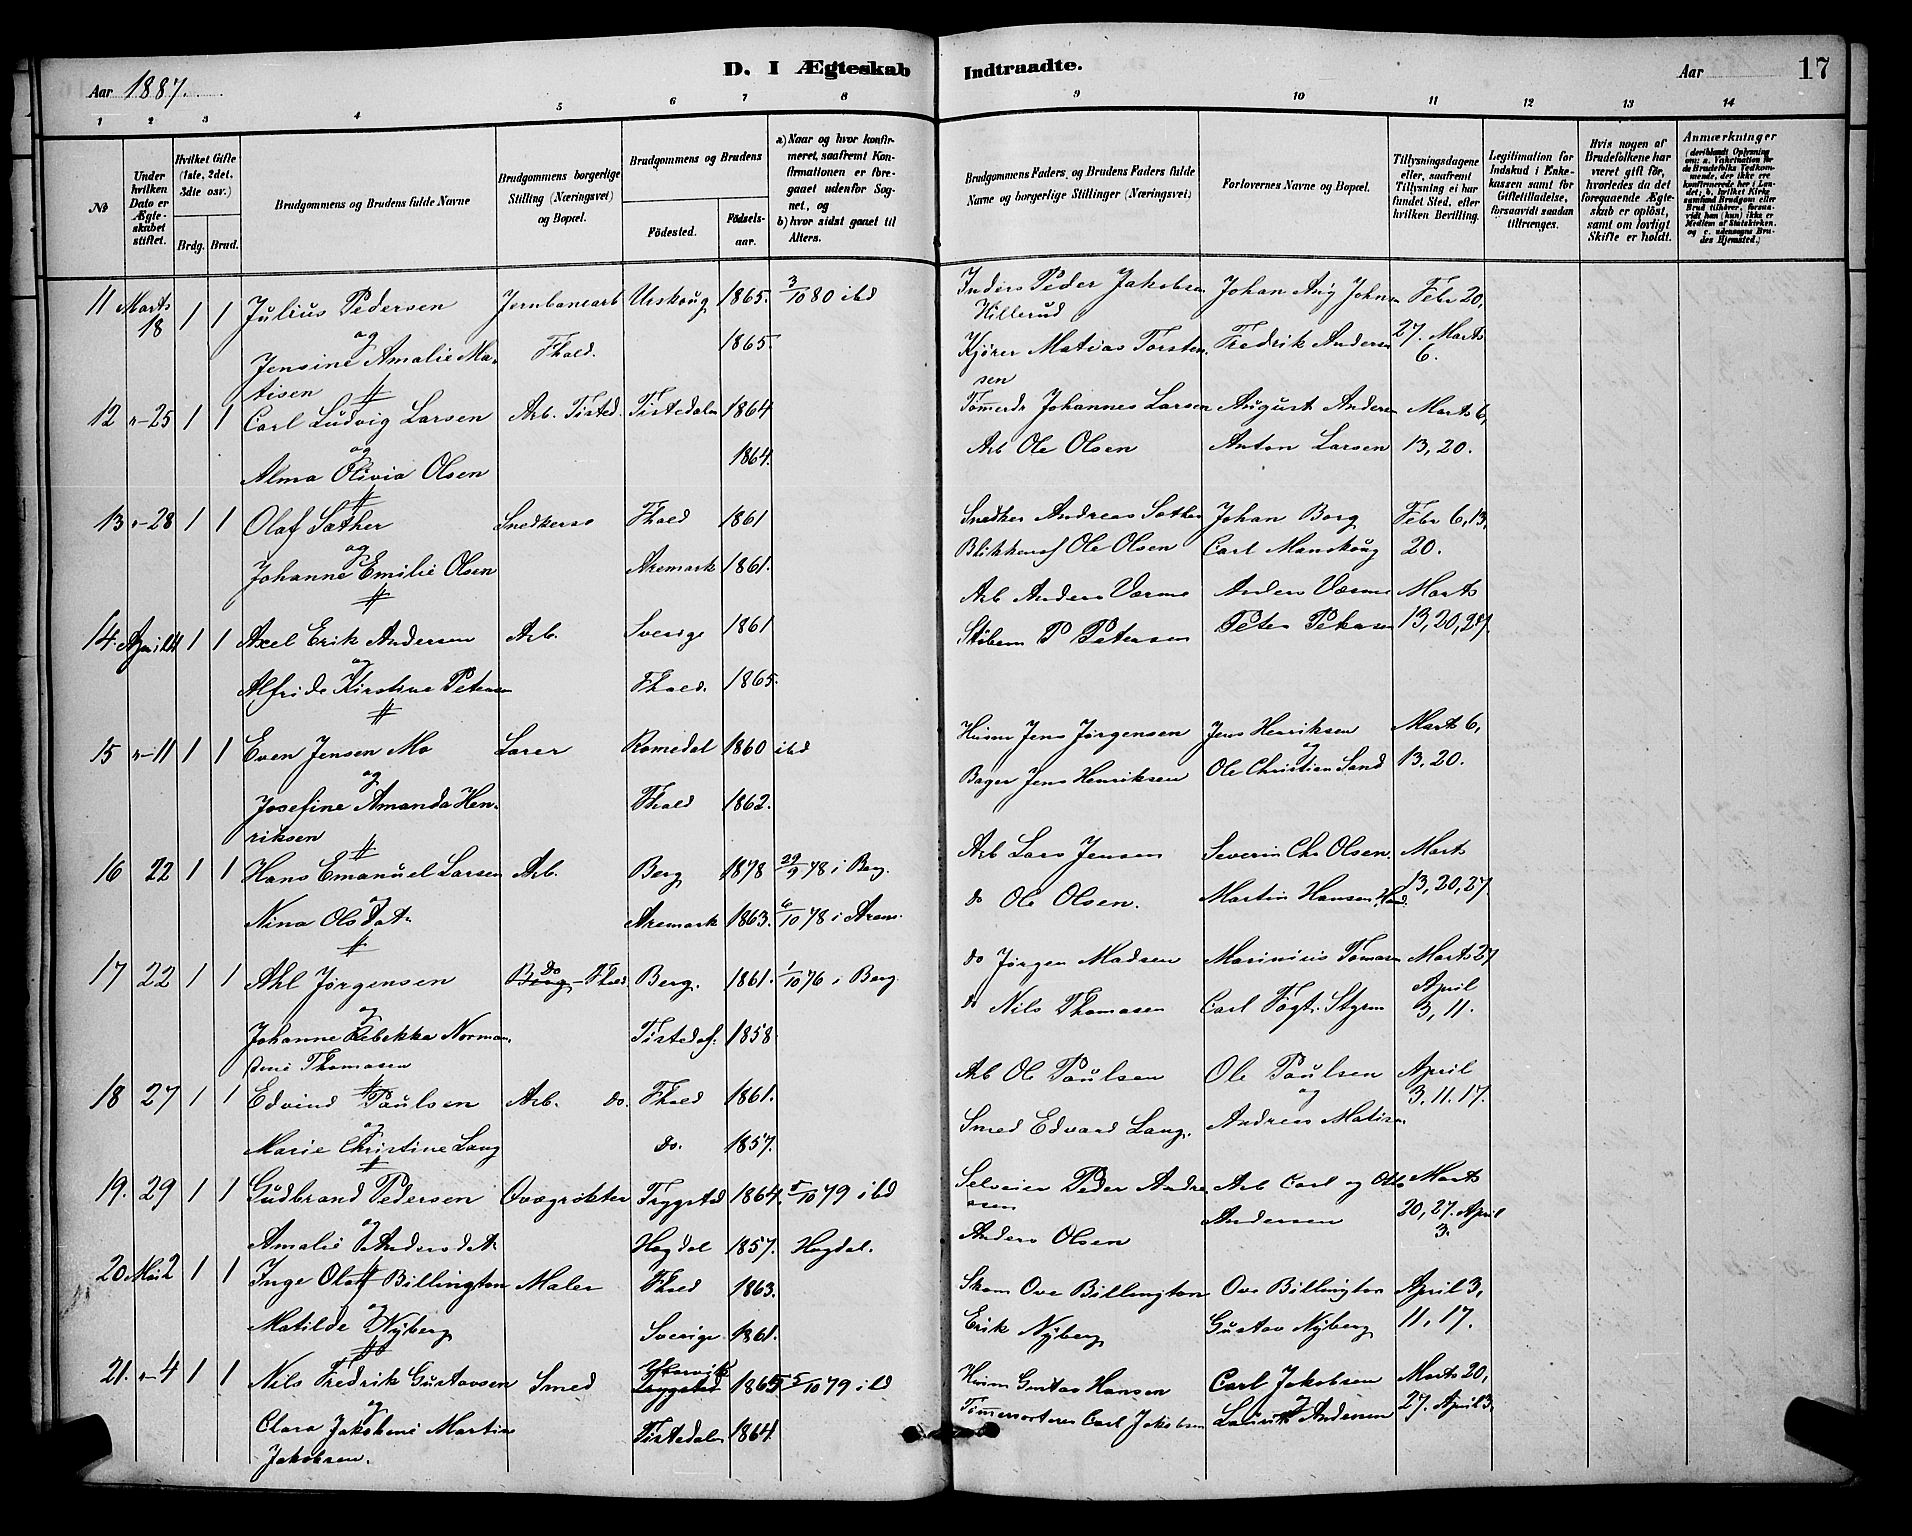 Aar 1887. D. I Ægteskab Indtraadte. Aar 17
1 2 3 4 5 6 7 8 9 10 11 12 13 14
No
Under hvilken Dato er Ægteskabet stiftet.
Hvilket Gifte (1ste, 2det, 3die osv.)
Brdg. Brud.
Brudgommens og Brudens fulde Navne
Brudgommens borgerlige Stilling (Næringsvei) og Bopæl.
Brudgommens og Brudens
Födested. Födselsaar.
a) Naar og hvor konfirmeret, saafremt Konfirmationen er foregaaet udenfor Sognet, og
b) hvor sidst gaaet til Alters.
Brudgommens Faders, og Brudens Faders fulde Navne og borgerlige Stillinger (Næringsvei)
Forlovernes Navne og Bopæl.
Tillysningsdagene eller, saafremt Tillysning ei har fundet Sted, efter hvilken Bevilling.
Legitimation for Indskud i Enkekassen samt for Giftetilladelse, forsaavidt saadan tiltrænges.
Hvis nogen af Brudefolkene har været gift för, hvorledes da det foregaaende Ægteskab er oplöst, samt om lovligt Skifte er holdt.
Anmærkninger
11 Marts 18 1 1 Julius Pedersen Jernbanearb Urskoug 1865. 3/10 80 ibd Inders Peder Jakobsen Hillerud Johan Aug Johnsen Febr 20,
og
Jensine Amalie Matisen Fhald. 1865. Kjörer Matias Torstensen Fredrik Anders 27. Marts 6.
12 "-25 1 1 Carl Ludvig Larsen Arb. Tisted. Tistedalen 1864 Tömerdr Johannes Larsen August Anders Marts 6,
og
Alma Olivia Olsen 1864. Arb Ole Olsen Anton Larsen 13, 20.
13 "-28 1 1 Olaf Sæther Snedkersv Fhald 1861 Snedker Andreas Sæther Johan Borg Febr 6, 13,
og
Johanne Emilie Olsen Aremark 1861. Blikkensl Ole Olsen Carl Manskoug 20.
14. April 11 1 1 Axel Erik Andersen Arb. Sverige 1861 Arb Anders Værme Anders Værme Marts
og
Alfride Kirstine Petersen Fhald. 1865. Stöberm P Petersen Peter Petersen 13, 20, 27.
15 "-11 1 1 Even Jensen Mo Lærer Romedal 1860 ibd Husm Jens Jörgensen Jens Henriksen Marts 6,
og
Josefine Amanda Henriksen Fhald 1862. Bager Jens Henriksen Ole Christian Sand 13. 20.
16 22 1 1 Hans Emanuel Larsen Arb. Berg 1878 29/9 78 i Berg. Arb Lars Jensen Severin Chr Olsen. Marts
og
Nina Olsdat. Aremark 1863. 6/10 78 i Arem. do Ole Olsen. Martin Hansen 13, 20, 27.
17 22 1 1 Ahl Jörgensen do Fhald Berg. 1861. 1/10 76 i Berg do Jörgen Madsen Marinius Tomasn Marts 27
og
Johanne Rebekka Normandine Thomasen Tistedal. 1858 do Nils Thomasen Carl Fogt. Styrm April 3, 11.
18 27 1 1 Edvind Paulsen Arb. do. Fhald 1861. Arb Ole Paulsen Ole Paulsen April
og
Marie Christine Lang do. 1857. Smed Edvard Lang. Andreas Matisn 3. 11. 17.
19. 29 1 1 Gudbrand Pedersen Qvægrökter Trygstad 1864. 5/10 79 ibd Selveier Peder Andresen Arb Carl og Ole Andersen Marts
og
Amalie Andersdat. Hogdal 1857. Hogdal. Anders Olsen 20, 27. April 3.
20. Mai 2 1 1 Inge Olaf Billington Maler Fhald 1863. Skom Ove Billington Ove Billington April 3,
og
Matilde Nyberg Sverige 1861. Erik Nyberg Gustav Nyberg 11, 17.
21. "-4 1 1 Nils Fredrik Gustavsen Smed Trygstad 1865 5/10 79 ibd Husm Gustav Hansen Carl Jakobsen Marts 20,
og
Clara Jakobine Martine Jakobsen. Tistedalen 1864. Tömersorterer Carl Jakobsen Laurits Andersen 27. April 3.